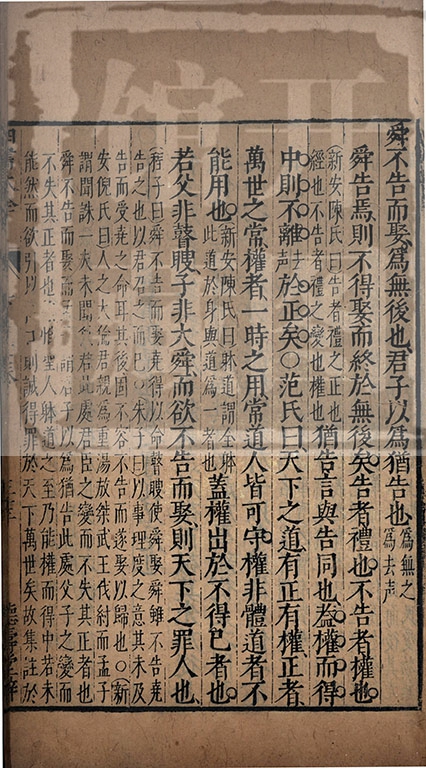 舜不告而娶爲無後也君子以爲猶告也爲無之
爲去声
舜告焉則不得娶而終於無後矣告者禮也不告者權也
新安陳氏曰告者禮之正也
經也不告者禮之變也權也猶告言與告同也蓋權而得
中則不離去声於正矣○范氏曰天下之道有正有權正者
萬世之常權者一時之用常道人皆可守權非體道者不
能用也新安陳氏曰躰道謂全躰
此道於身與道爲一者也蓋權出於不得已者也
若父非瞽瞍子非大舜而欲不告而娶則天下之罪人也
程子曰舜不告而娶堯得以命瞽瞍使舜娶舜雖不告堯
告之也以君召之而已○朱子曰以事理度之意其未及
告而受堯之命耳其後固不容不告而遂娶以歸也○新
安倪氏曰人之大倫君親爲重湯放桀武王伐紂而孟子
謂聞誅一夫未聞弒君此處君臣之變而不失其正者也
舜不告而娶而謂君子以爲猶告此處父子之變而
不失其正者也惟聖人躰道之至乃能權而得中若未
能然而欲引以口則誠得罪於天下萬世矣故集註於
四書大全